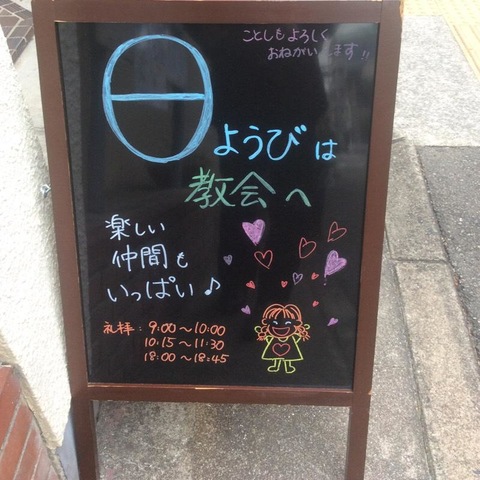 ことしもよろしく
おねがいします!!
日ようびは
教会へ
楽しい
仲間も
いっぱい♪
礼拝:9:00〜10:00
10:15〜11:30
18:00〜18:45